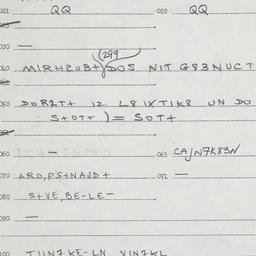 021 QQ 022 QQ
030 —
(299
040 MIRHPUB+/DOS NIT G83NUCT
050 DORZT+ 12 L8IXTIK8 UN DO
S+OT+ ) = SOT+
060 — 061 CAJN7K83N
070 ARD,PS+NAUD+ 071 —
080 S+VE,BE-LE-
090 —
100 TUN7KE-LN VIN7KL